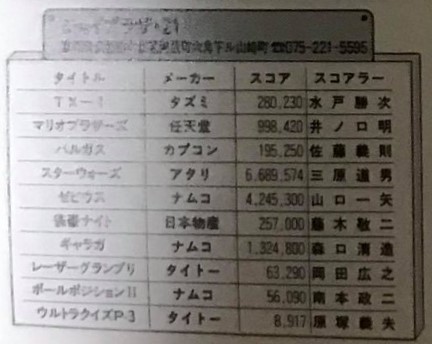 下ル山崎町☎075-221-5595
タイトル メーカー スコア スコアラー
TX-1 タズミ 280,230 水戸勝次
マリオブラザーズ 任天堂 998,420 井ノ口明
バルガス カプコン 195,250 佐藤義則
スターウォーズ アタリ 6,689,574 三原道男
ゼビウス ナムコ 4,245,300 山口一矢
ナイト 日本物産 257,000 藤木敬二
ギャラガ ナムコ 1,324,800 森口清造
レーザーグランプリ タイトー 63,290 岡田広之
ポールポジションII ナムコ 56,090 南本政二
ウルトラクイズP-3 タイトー 8,917 原塚義夫